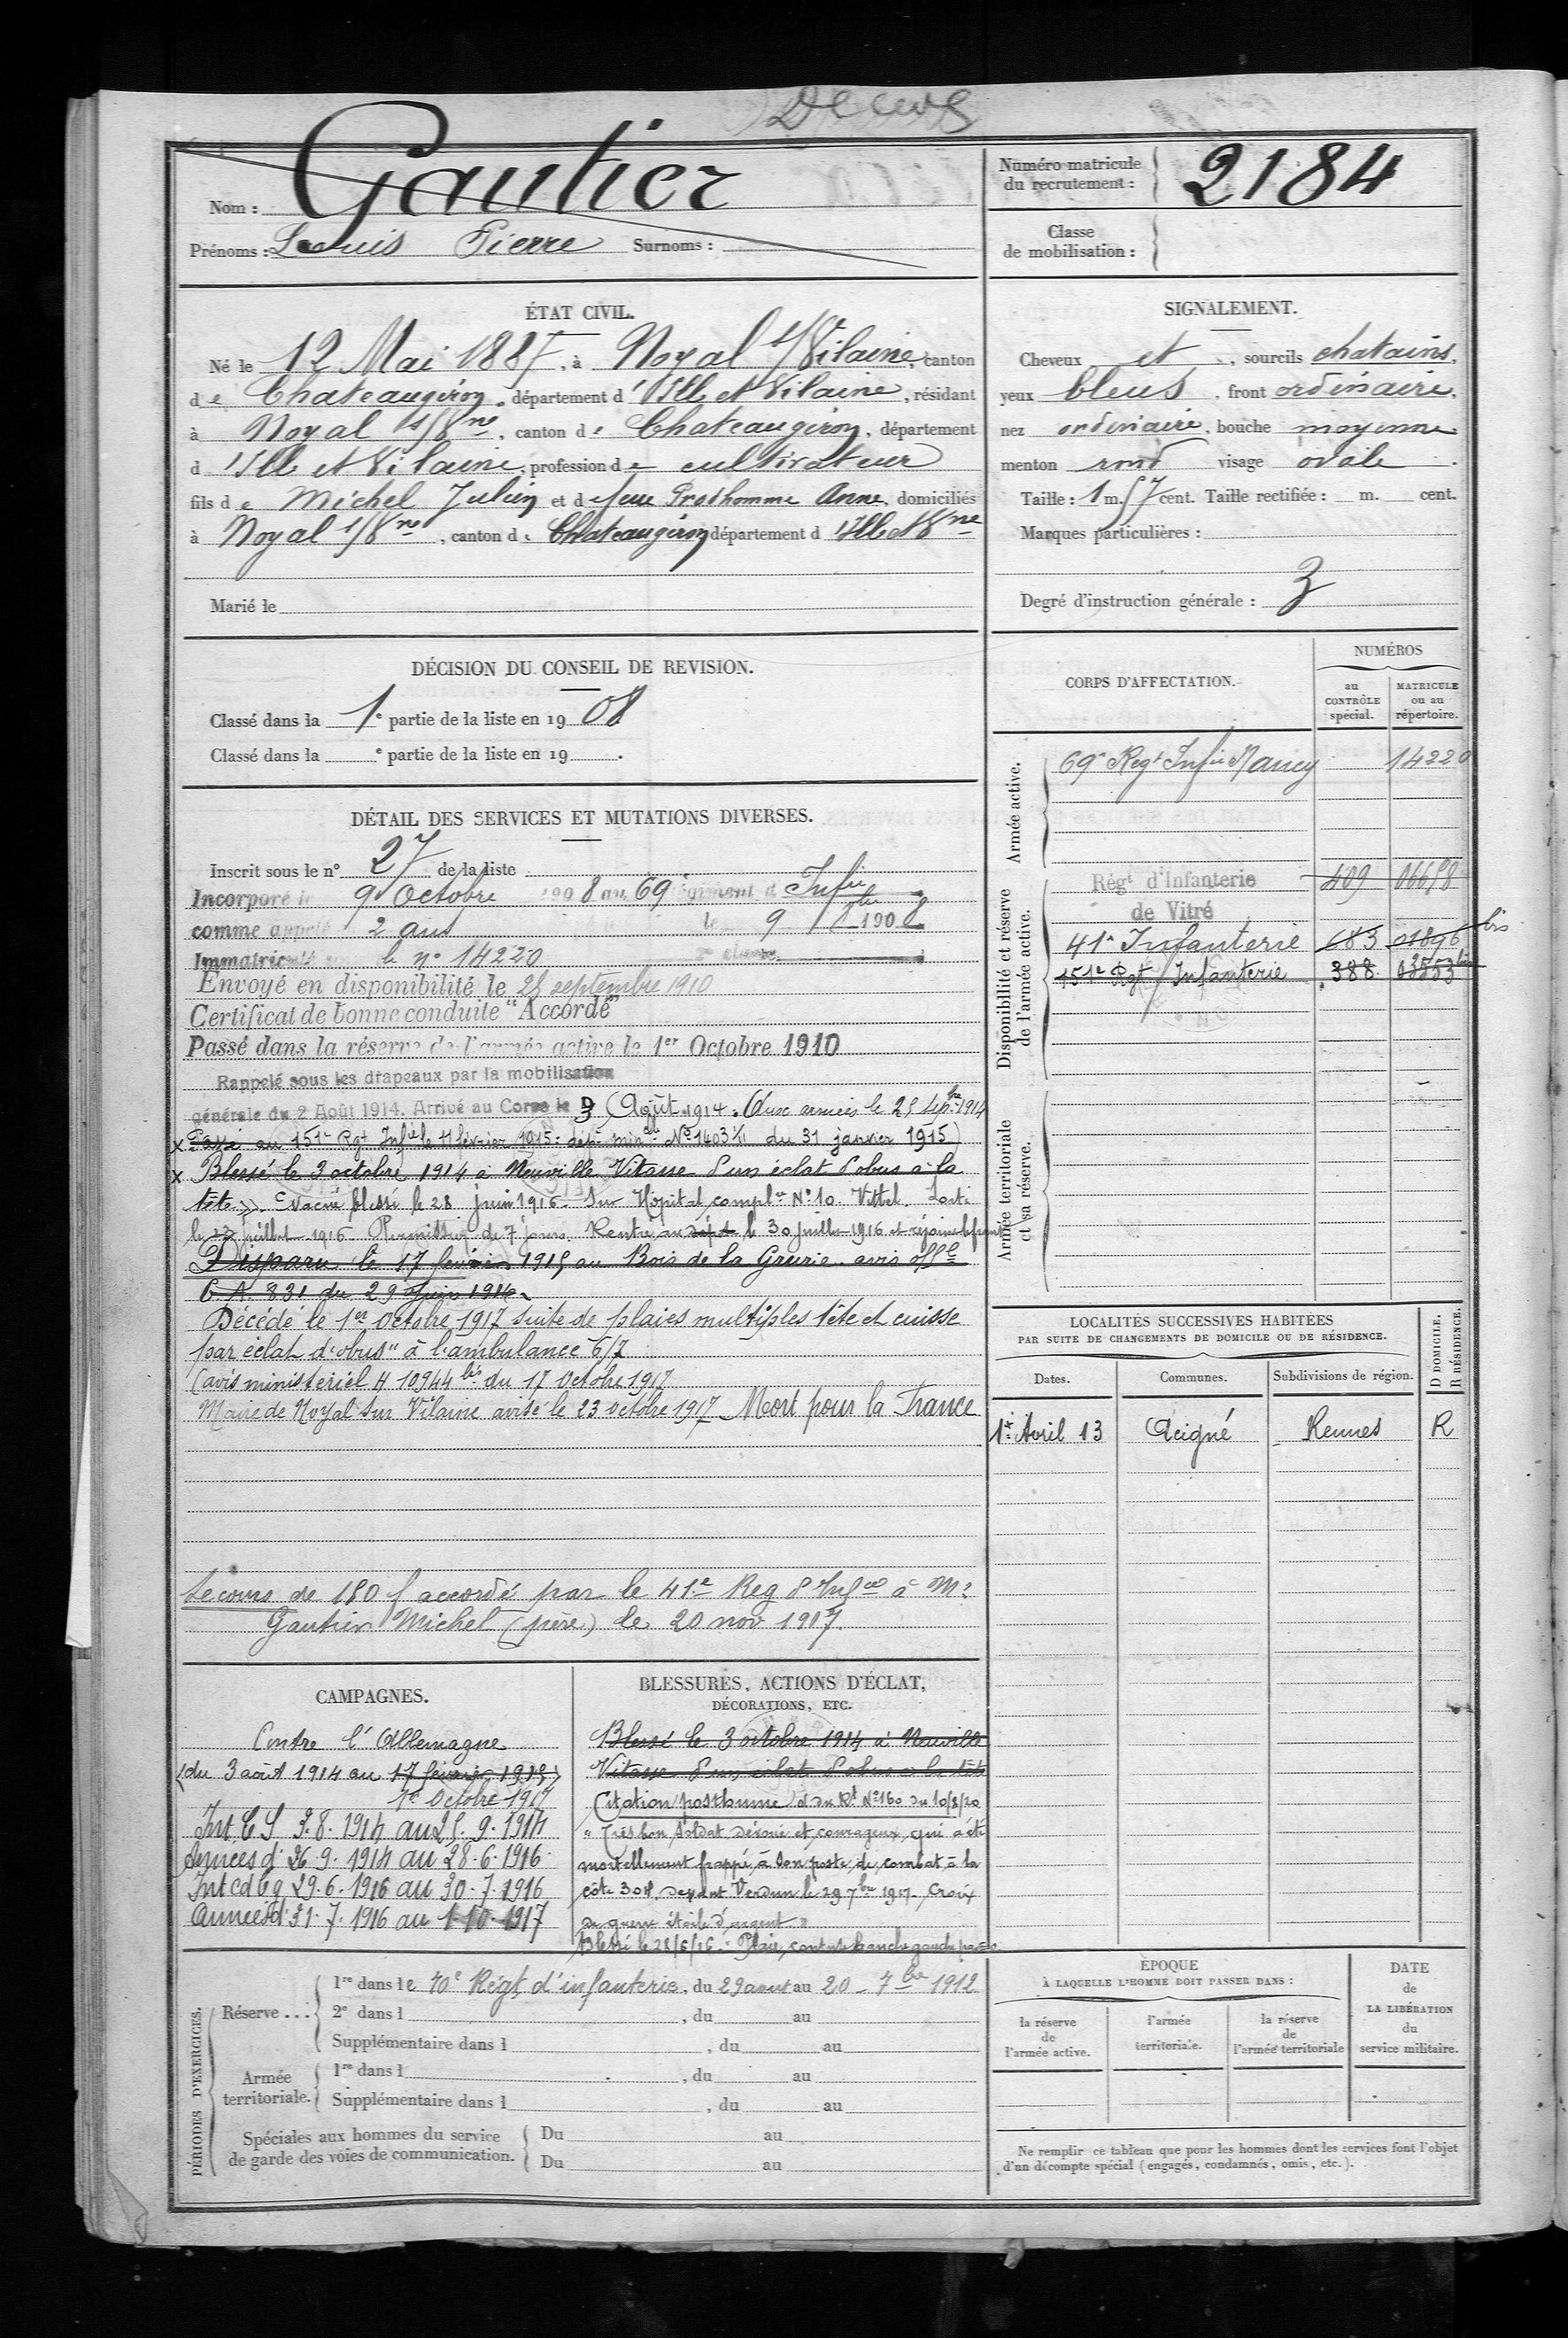 Décédé
Nom : Gautier
Prénoms : Louis Pierre Surnoms :
Numéro matricule
du recrutement : 2184
Classe
de mobilisation :
ÉTAT CIVIL.
Né le 12 Mai 1887, à Noyal s/Vilaine, canton
de Chateaugiron, département d'Ille et Vilaine, résidant
à Noyal s/Vne, canton de Chateaugiron, département
d'Ille et Vilaine, profession de cultivateur
fils de Michel Julien et de feue Prodhomme Anne, domiciliés
à Noyal s/Vne, canton de Chateaugiron département d'Ille et Vne
Marié le
SIGNALEMENT.
Cheveux et , sourcils chatains,
yeux bleus , front ordinaire,
nez ordinaire, bouche moyenne
menton rond visage ovale .
Taille : 1 m. 57 cent. Taille rectifiée : m. cent.
Marques particulières :
Degré d'instruction générale : 3
DÉCISION DU CONSEIL DE REVISION.
Classé dans la 1e partie de la liste en 1908
Classé dans la e partie de la liste en 19 .
DÉTAIL DES SERVICES ET MUTATIONS DIVERSES.
Inscrit sous le n° 27 de la liste
Incorporé le 9 Octobre 1908 au 69e régiment d'Infie
comme appelé 2 ans le 9 8bre 1908
Immatriculé sous le n° 14220 2e classe
Envoyé en disponibilité le 25 septembre 1910
Certificat de bonne conduite "Accordé"
Passé dans la réserve de l'armée active le 1er Octobre 1910
Rappelé sous les drapeaux par la mobilisation
générale du 2 Août 1914. Arrivé au Corps le 3 Août 1914. Aux armées le 25 Sepbre 1914
x Passé au 151e Rgt Infie le 11 février 1915 : dép. minlle N° 1403 du 31 janvier 1915)
x Blessé le 3 octobre 1914 à Neuville Vitasse d'un éclat d'obus à la
tête. Evacué blessé le 28 juin 1916. Sur Hôpital complre N° 10. Vittel. Sorti
le 23 juillet 1916 Permission de 7 jours. Rentré au dépôt le 30 juillet 1916 et rejoint le front
Disparu le 17 février 1915 au Bois de la Grurie avis offel
C A. 831 du 29 Juin 1914.
Décédé le 1er Octobre 1917 suite de plaies multiples tête et cuisse
par éclat d'obus" à l'ambulance 6/7
(avis ministeriel H 10944 bis du 17 Octobre 1917
Maire de Noyal sur Vilaine avisé le 23 octobre 1917 Mort pour la France
Secours de 180 f accordé par le 41e Reg d'Infie à Mr
Gautier Michel (père) le 20 nov 1917.
CORPS D'AFFECTATION.
NUMÉROS
au
CONTRÔLE
spécial.
MATRICULE
ou au
répertoire.
Armée active.
69e Regt Infie Nancy 14220
Disponibilité et réserve
de l'armée active.
Régt d'Infanterie 409 06658
de Vitré
41e Infanterie 683 01896 bis
151e Rgt Infanterie 388 03553 bis
Armée territoriale
et sa réserve.
LOCALITÉS SUCCESSIVES HABITÉES
PAR SUITE DE CHANGEMENTS DE DOMICILE OU DE RÉSIDENCE.
Dates. Communes. Subdivisions de région. D DOMICILE. R RÉSIDENCE.
1er Avril 13 Acigné Rennes R
CAMPAGNES.
Contre l'Allemagne
du 3 août 1914 au 17 février 1915
1er Octobre 1917
Int. C S 3.8.1914 au 25.9.1914
Armées d' 26.9.1914 au 28.6.1916
Int cd bg 29.6.1916 au 30.7.1916
Armées d' 31.7.1916 au 1.10.1917
BLESSURES, ACTIONS D'ÉCLAT,
DÉCORATIONS, ETC.
Blessé le 3 octobre 1914 à Neuville
Vitasse d'un éclat d'obus à la tête
Citation posthume N° 160 du 10/8/20
"Très bon soldat dévoué et courageux, qui a été
mortellement frappé, à son poste, de combat à la
côte 304 devant Verdun le 29 7bre 1917. Croix
de guerre étoile d'argent"
Blessé le 28/6/16. Plaie contuse hanche gauche
PÉRIODES D'EXERCICES.
Réserve ...
1re dans le 70e Régt d'infanterie, du 29 aout au 20 7bre 1912
2e dans l , du au
Supplémentaire dans l , du au
Armée
territoriale.
1re dans l , du au
Supplémentaire dans l , du au
Spéciales aux hommes du service
de garde des voies de communication.
Du au
Du au
ÉPOQUE
À LAQUELLE L'HOMME DOIT PASSER DANS :
la réserve
de
l'armée active.
l'armée
territoriale.
la réserve
de
l'armée territoriale
DATE
de
LA LIBÉRATION
du
service militaire.
Ne remplir ce tableau que pour les hommes dont les services font l'objet
d'un décompte spécial (engagés, condamnés, omis, etc.).